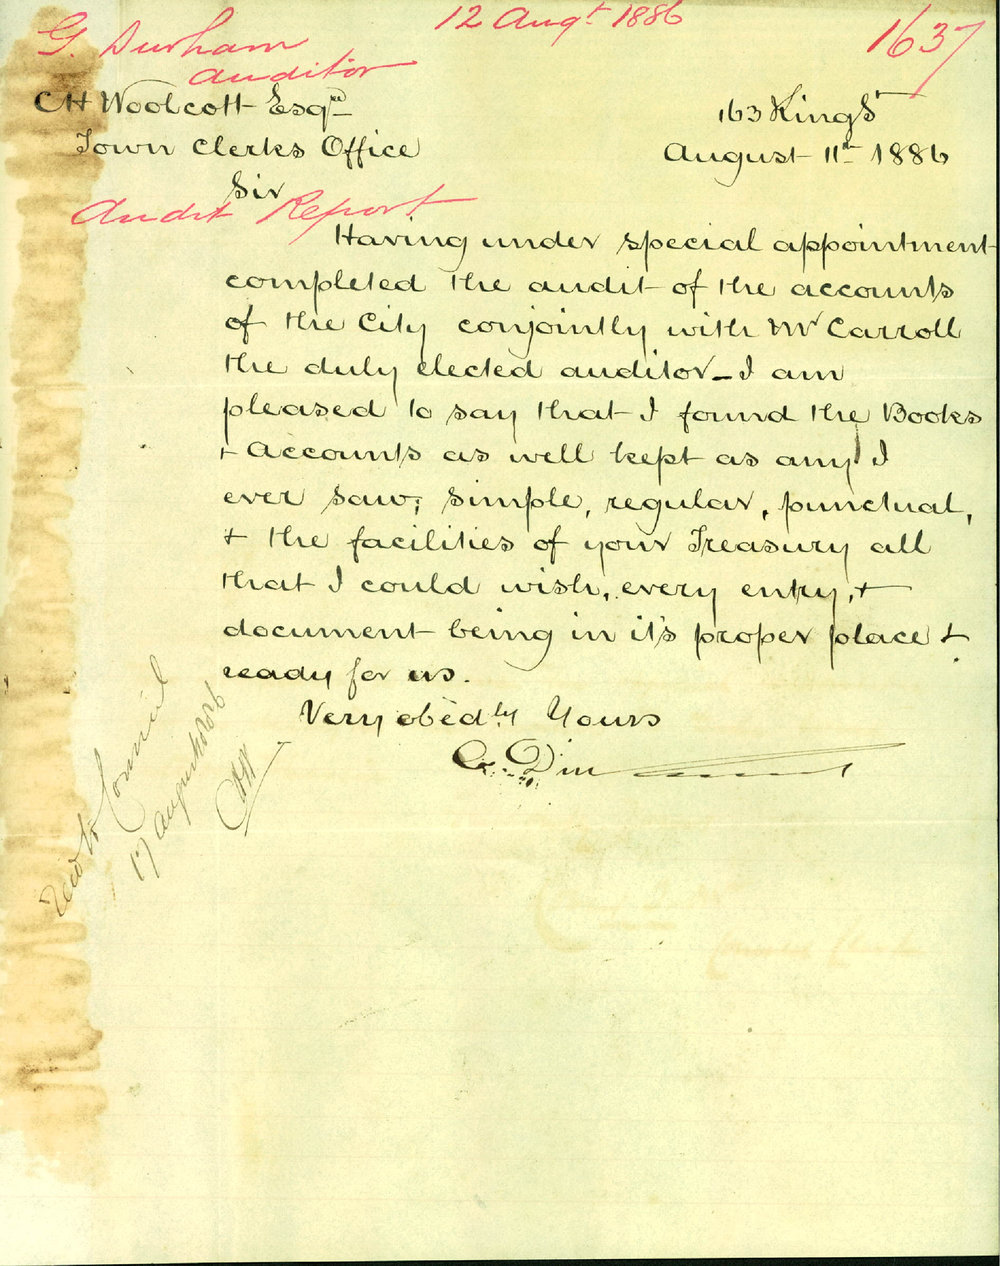 12 Augt 1886
1637
G. Durham
Auditor
CH Woolcott Esqre
Town Clerks Office
163 King St
August 11th 1886
Sir
Audit Report
Having under special appointment
completed the audit of the accounts
of the City conjointly with Mr Carroll
the duly elected auditor – I am
pleased to say that I found the Books
& Accounts as well kept as any I
ever saw; simple, regular, punctual,
& the facilities of your Treasury all
that I could wish, every entry, &
document being in it's proper place &
ready for us.
Very obedtly Yours
G. Dur
to Council
17 August 1886
CHW